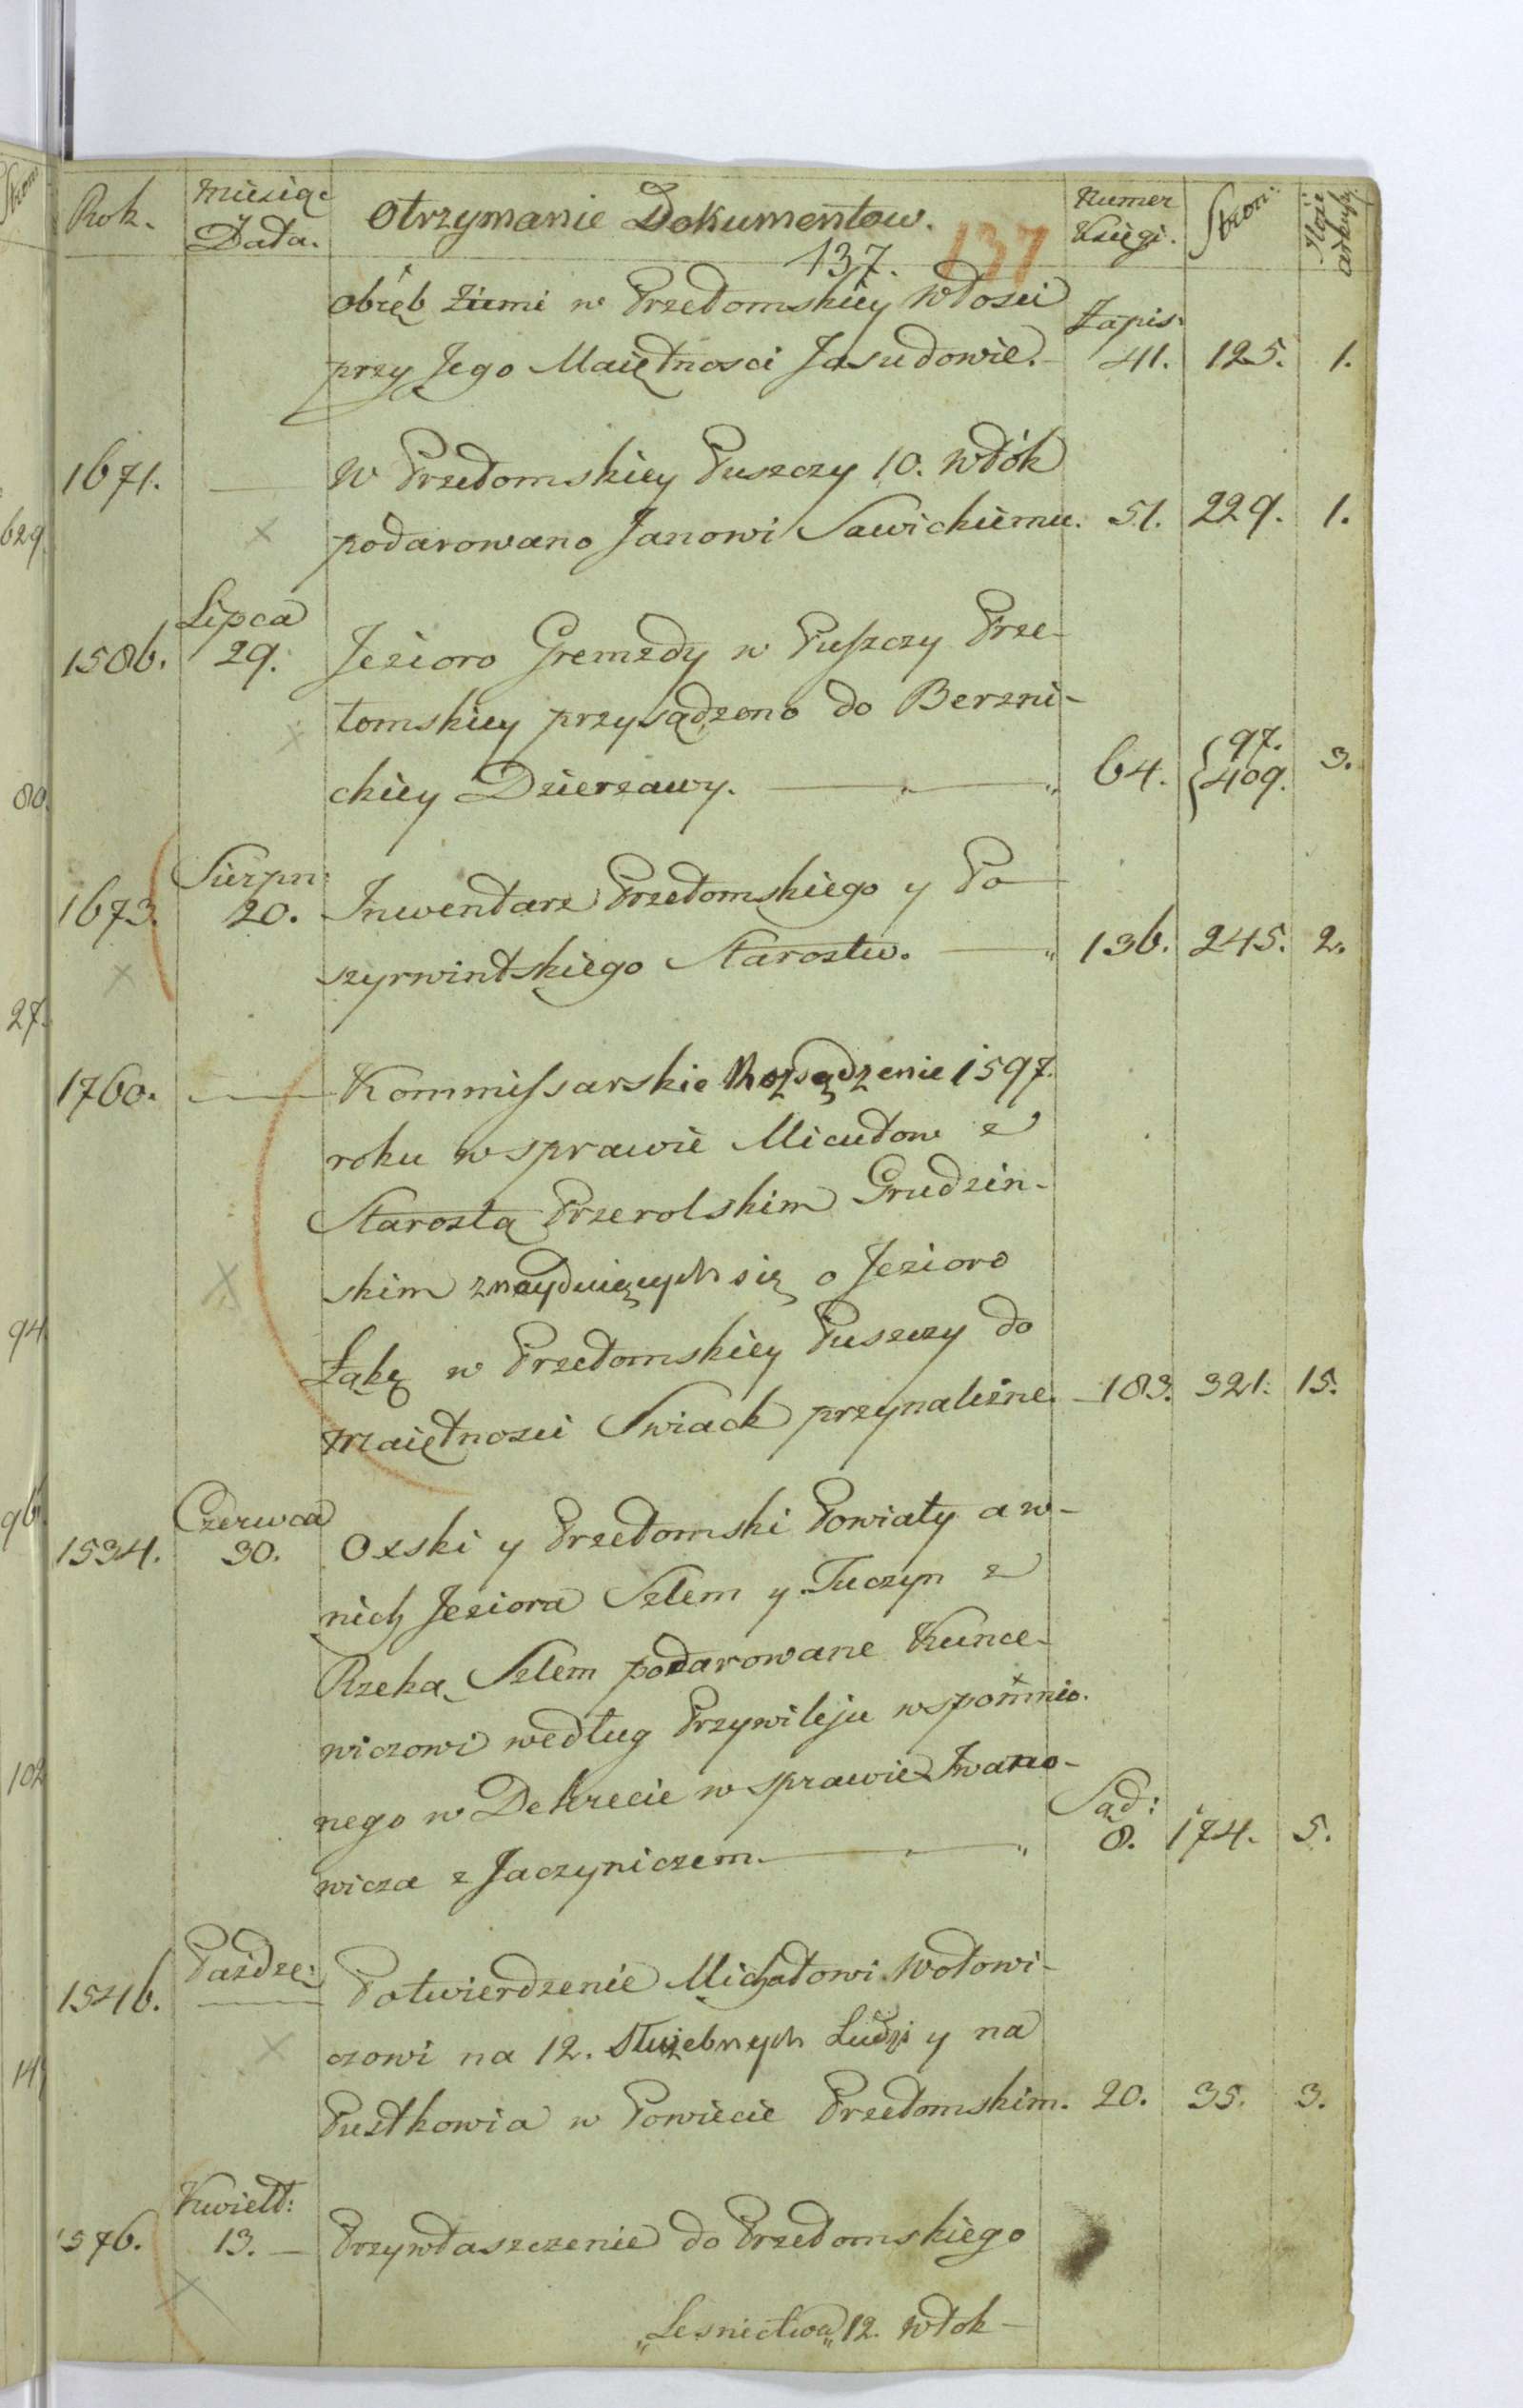 Rok. Miesiąc Data. Otrzymanie Dokumentow. Numer Księgi. Stron:
137. 137
obręb Ziemi w Przełomskiey Włosci
przy Jego Maiętnosci Jasudowie. Zapis: 41. 125. 1.
1671. — W Przełomskiey Puszczy 10. włók
podarowano Janowi Sawickiemu. 51. 229. 1.
Lipca
1586. 29. Jezioro Gremzdy w Puszczy Prze-
łomskiey przysądzono do Berzni-
ckiey Dzierzawy. — 64. { 97. 409. 3.
Sierpn:
1673. 20. Inwentarz Przełomskiego y Po-
szyrwintskiego Starostw. — 136. 245. 2.
1760. — Kommissarskie Rozsądzenie 1597.
roku w sprawie Micutow z
Starostą Przerolskim Grudzin-
skim znayduiących się o Jezioro
Łakę w Przełomskiey Puszczy do
maiętnosci Swiack przynależne. — 183. 321. 15.
Czerwca
1534. 30. Ozski y Przełomski Powiaty a w-
nich Jeziora Szlem y Tuczyn z
Rzeką Szlem podarowane Kunce-
wiczowi według Przywileju wspomnio-
nego w Dekrecie w sprawie Iwano-
wicza z Jaczyniczem. — Sąd: 8. 174. 5.
Paźdze:
1546. — Potwierdzenie Michałowi Wołowi-
czowi na 12. Służebnych Ludzi y na
Pustkowia w Powiecie Przełomskim. 20. 35. 3.
Kwiett:
1576. 13. — Przywłaszczenie do Przełomskiego
„Lesnictwa„ 12. włok —
629.
80.
27.
94.
96.
102